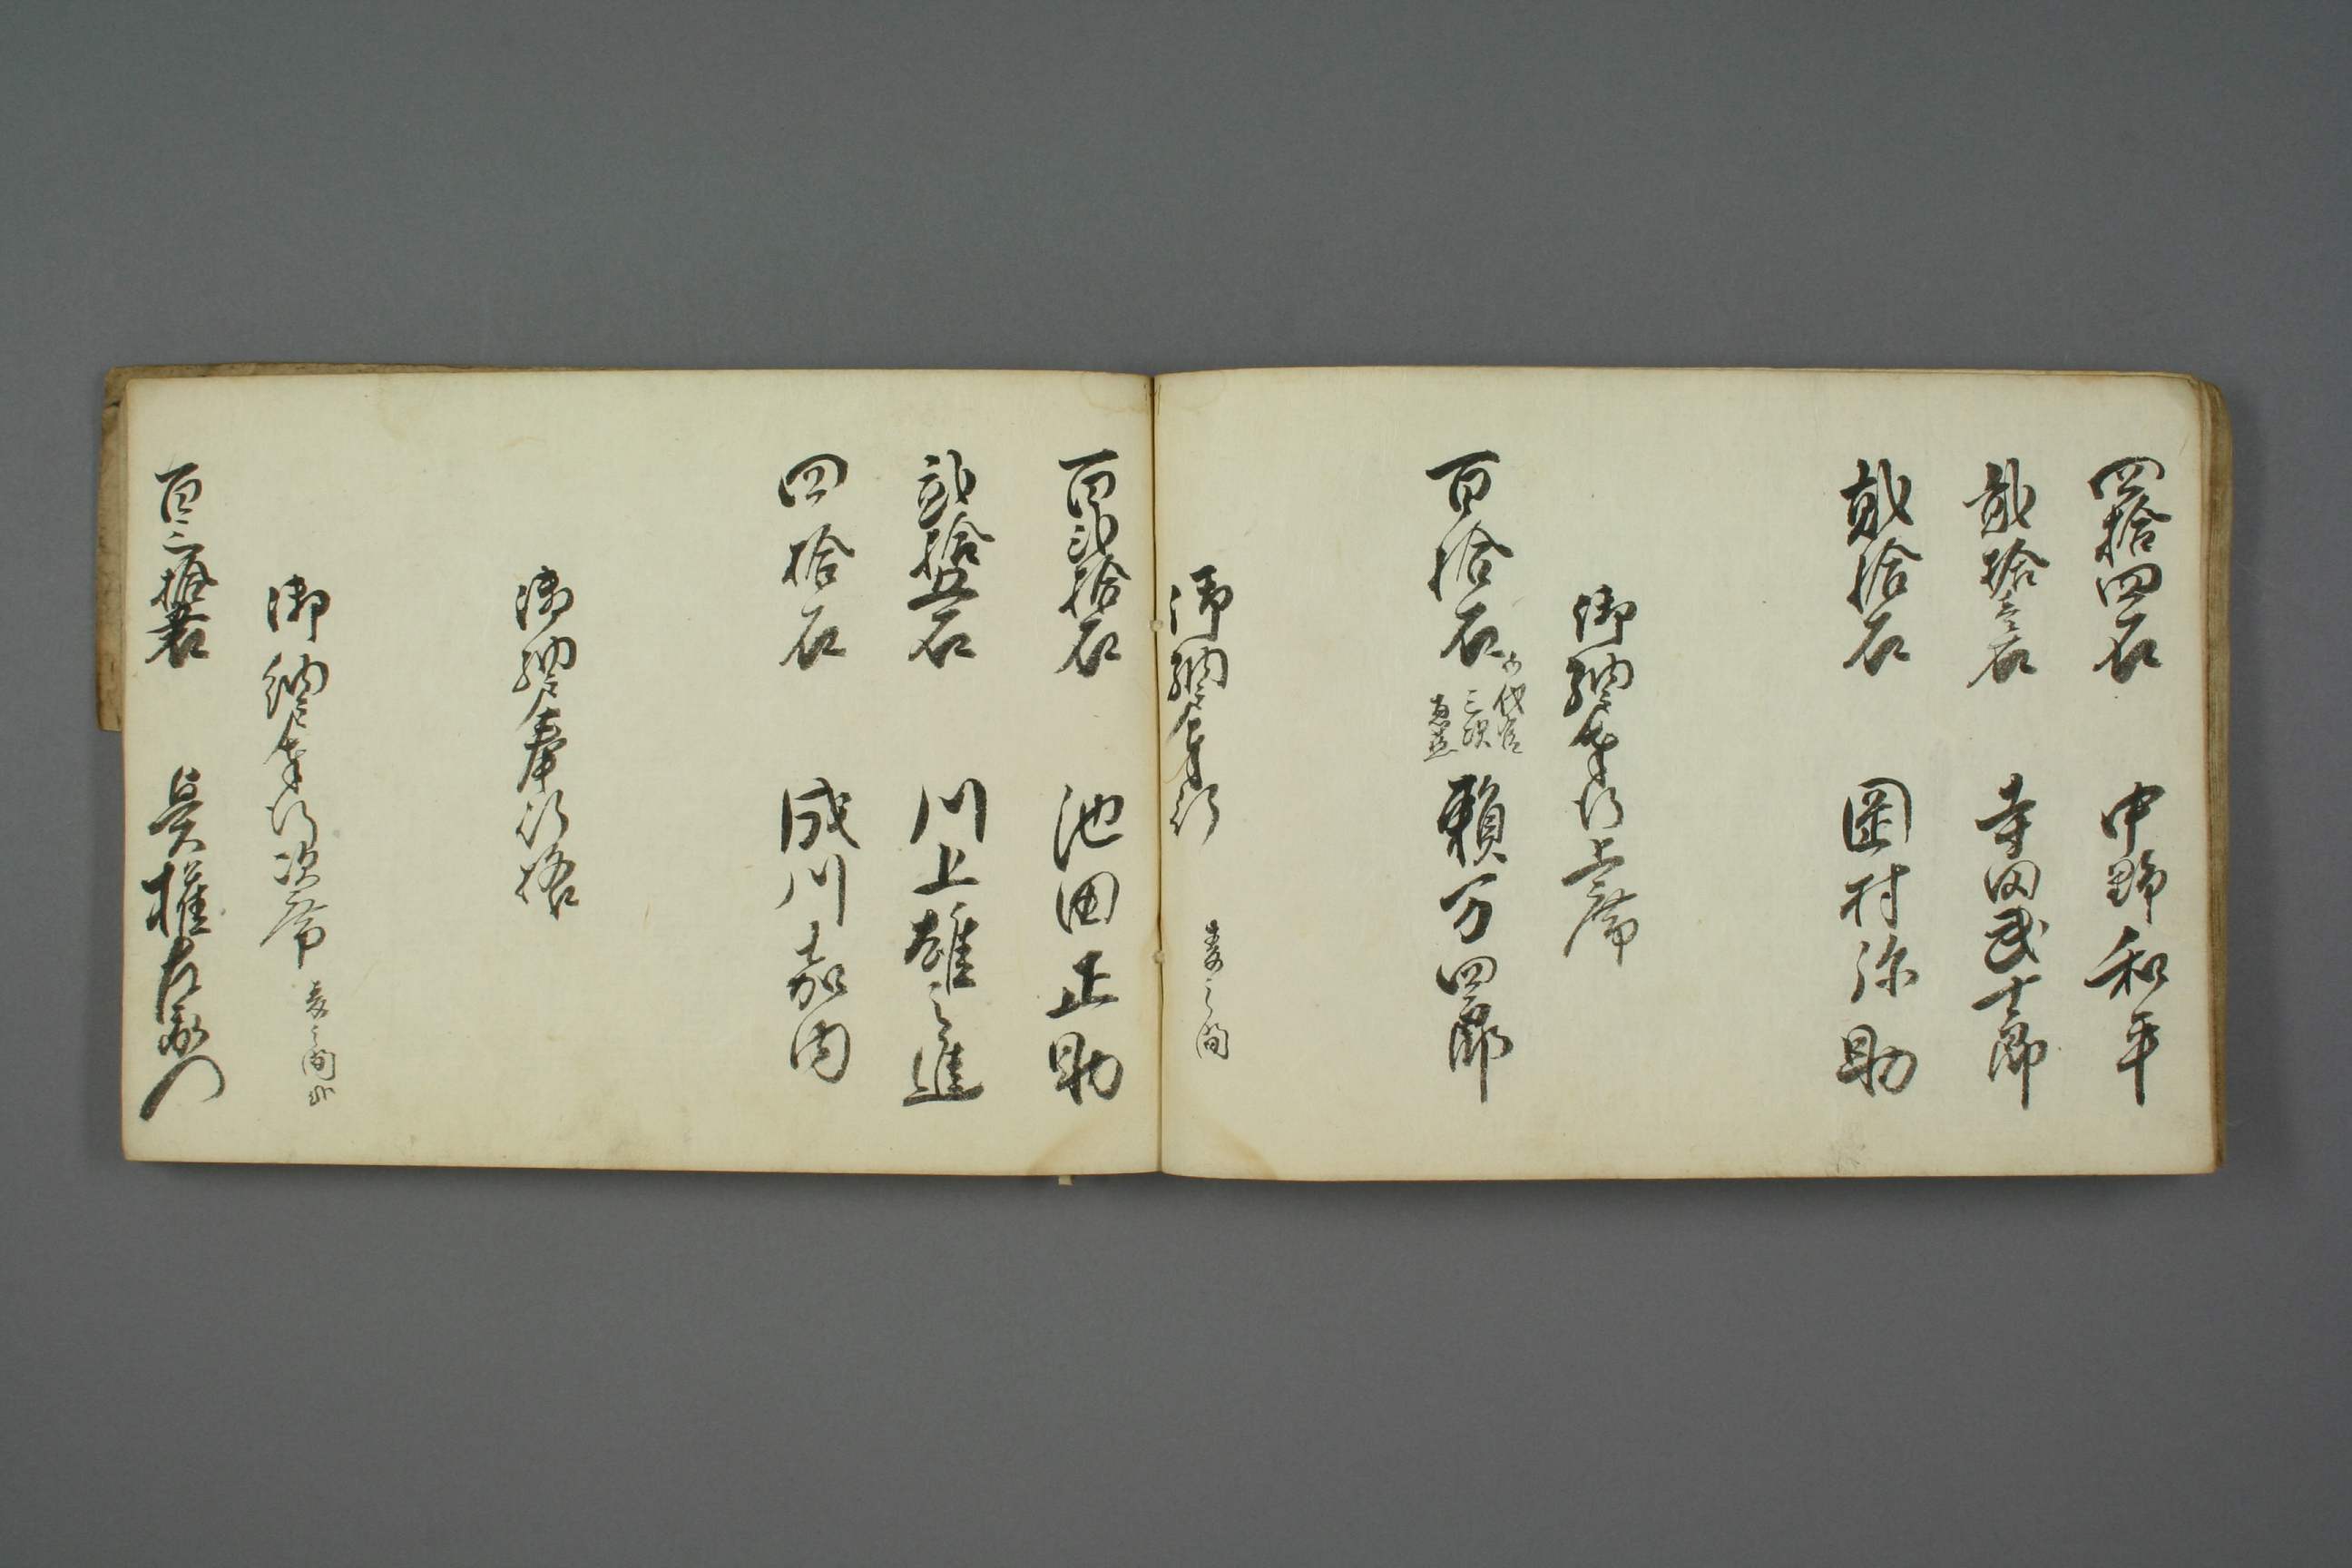 四拾四石 中野和平
貳拾三石 寺田武十郎
貳拾石 岡村弥助
御納戸奉行上席
百拾石 御代官 三次 恵蘇 頼万四郎
御納戸奉行 表之間
百弐拾石 池田正助
弐拾五石 川上雄之進
四拾石 成川嘉内
御納戸奉行格
御納戸奉行次席 表之間
百三拾石 呉権左衛門